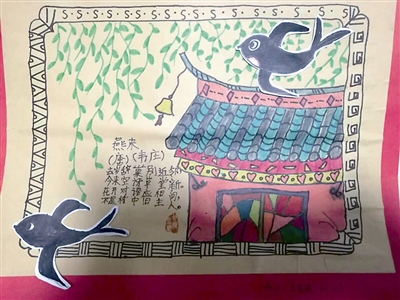 燕来
(唐)(韦庄)
去岁辞巢别近邻,
今来空讶草堂新。
花开对语应相问,
不是村中旧主人。